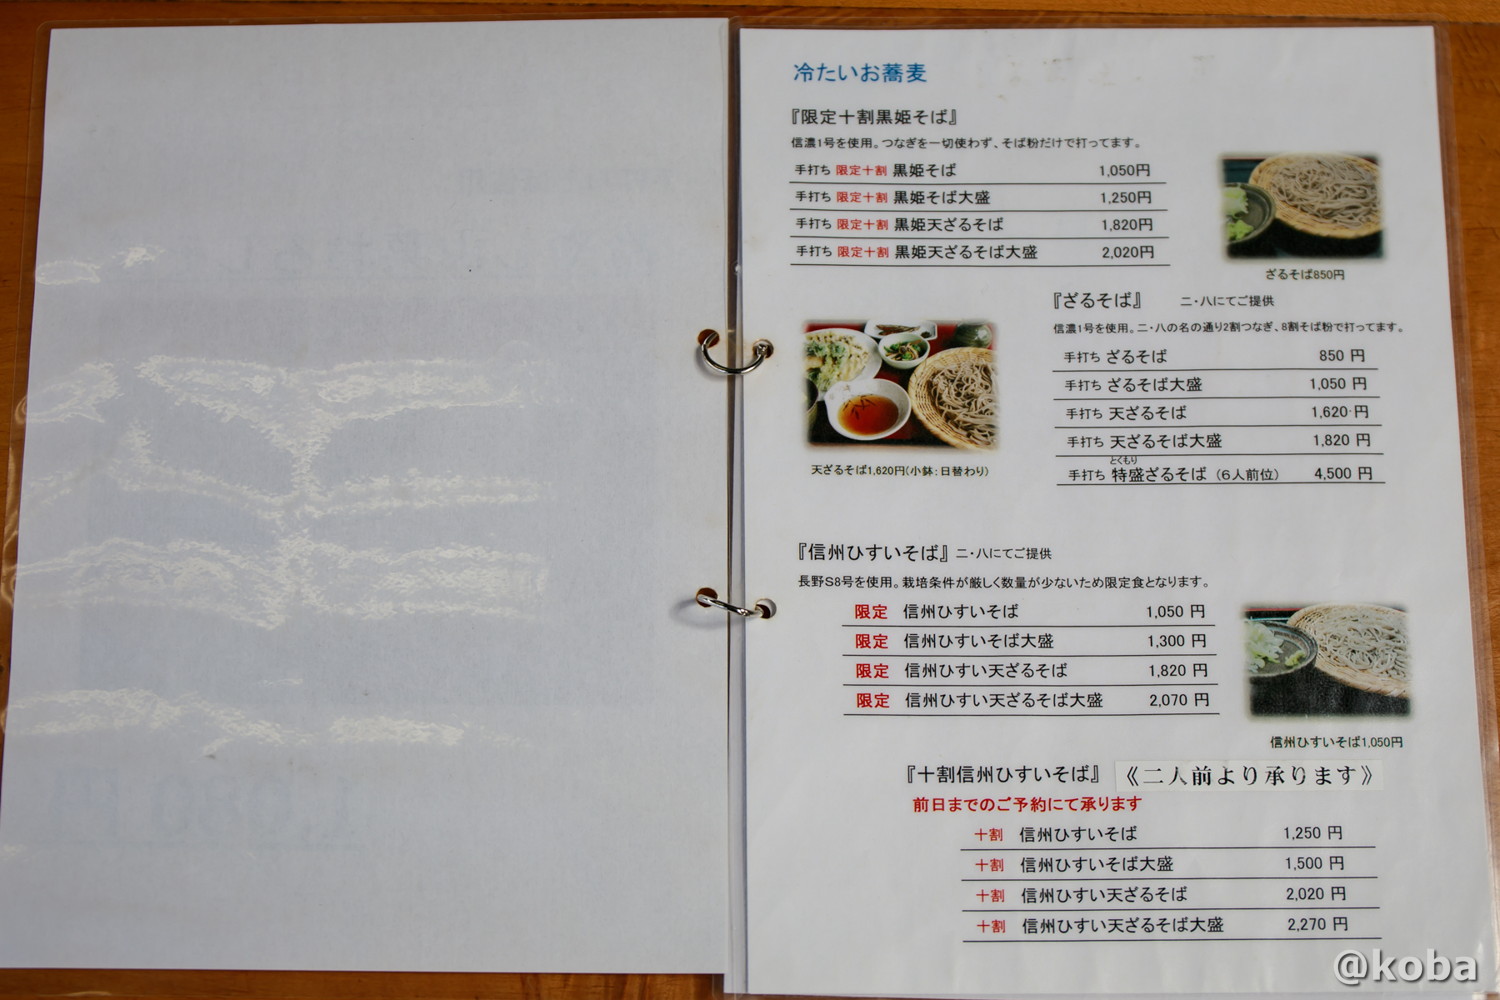 冷たいお蕎麦
『限定十割黒姫そば』
信濃1号を使用。つなぎを一切使わず、そば粉だけで打ってます。
手打ち 限定十割 黒姫そば 1,050円
手打ち 限定十割 黒姫そば大盛 1,250円
手打ち 限定十割 黒姫天ざるそば 1,820円
手打ち 限定十割 黒姫天ざるそば大盛 2,020円
ざるそば850円
『ざるそば』 二・八にてご提供
信濃1号を使用。二・八の名の通り2割つなぎ、8割そば粉で打ってます。
手打ち ざるそば 850 円
手打ち ざるそば大盛 1,050 円
手打ち 天ざるそば 1,620 円
手打ち 天ざるそば大盛 1,820 円
とくもり
手打ち 特盛ざるそば (6人前位) 4,500 円
天ざるそば1,620円(小鉢:日替わり)
『信州ひすいそば』 二・八にてご提供
長野S8号を使用。栽培条件が厳しく数量が少ないため限定食となります。
限定 信州ひすいそば 1,050 円
限定 信州ひすいそば大盛 1,300 円
限定 信州ひすい天ざるそば 1,820 円
限定 信州ひすい天ざるそば大盛 2,070 円
信州ひすいそば1,050円
『十割信州ひすいそば』 《二人前より承ります》
前日までのご予約にて承ります
十割 信州ひすいそば 1,250 円
十割 信州ひすいそば大盛 1,500 円
十割 信州ひすい天ざるそば 2,020 円
十割 信州ひすい天ざるそば大盛 2,270 円
@koba